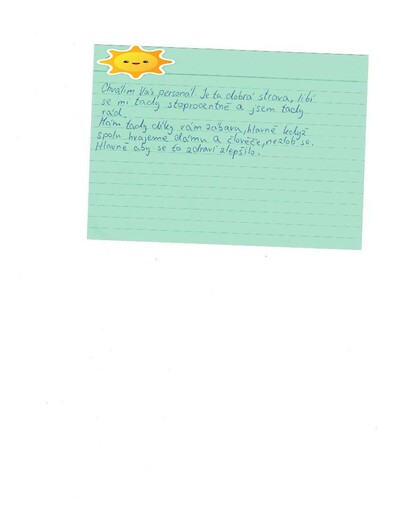 Chválím Váš personál. Je tu dobrá strava, líbí
se mi tady stoprocentně a jsem tady
rád.
Mám tady díky vám zábavu, hlavně když
spolu hrajeme dámu a člověče, nezlob se.
Hlavně aby se to zdraví zlepšilo.